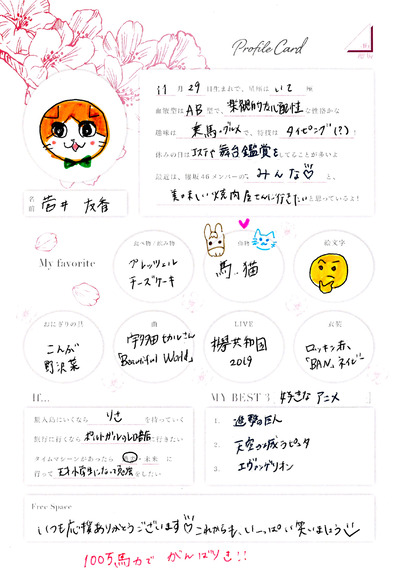 Profile Card
11月29日生まれで、星座はいて座
血液型はAB型で、楽観的かつ心配性な性格かな
趣味は乗馬・グルメで、特技はタイピング(?)!
休みの日はエステや舞台鑑賞をしてることが多いよ
最近は、欅坂46メンバーの、みんな♡と、
美味しい焼肉屋さんに行きたいと思っているよ!
名前 菅井 友香
My favorite
食べ物/飲み物
プレッツェル
チーズケーキ
動物
馬、猫
絵文字
おにぎりの具
こんぶ
野沢菜
曲
宇多田ヒカルさん
「Beautiful World」
LIVE
欅共和国
2019
衣装
ロッキン赤、
「BAN」ネイビー
If...
無人島にいくなら りさ を持っていく
旅行に行くならポルトガルの に行きたい
タイムマシーンがあったら 過去・未来 に
行って をしたい
MY BEST 3 好きなアニメ
1. 進撃の巨人
2. 天空の城ラピュタ
3. エヴァンゲリオン
Free Space
いつも応援ありがとうございます♡これからも、いっぱい笑いましょう
100万馬力で がんばりき!!